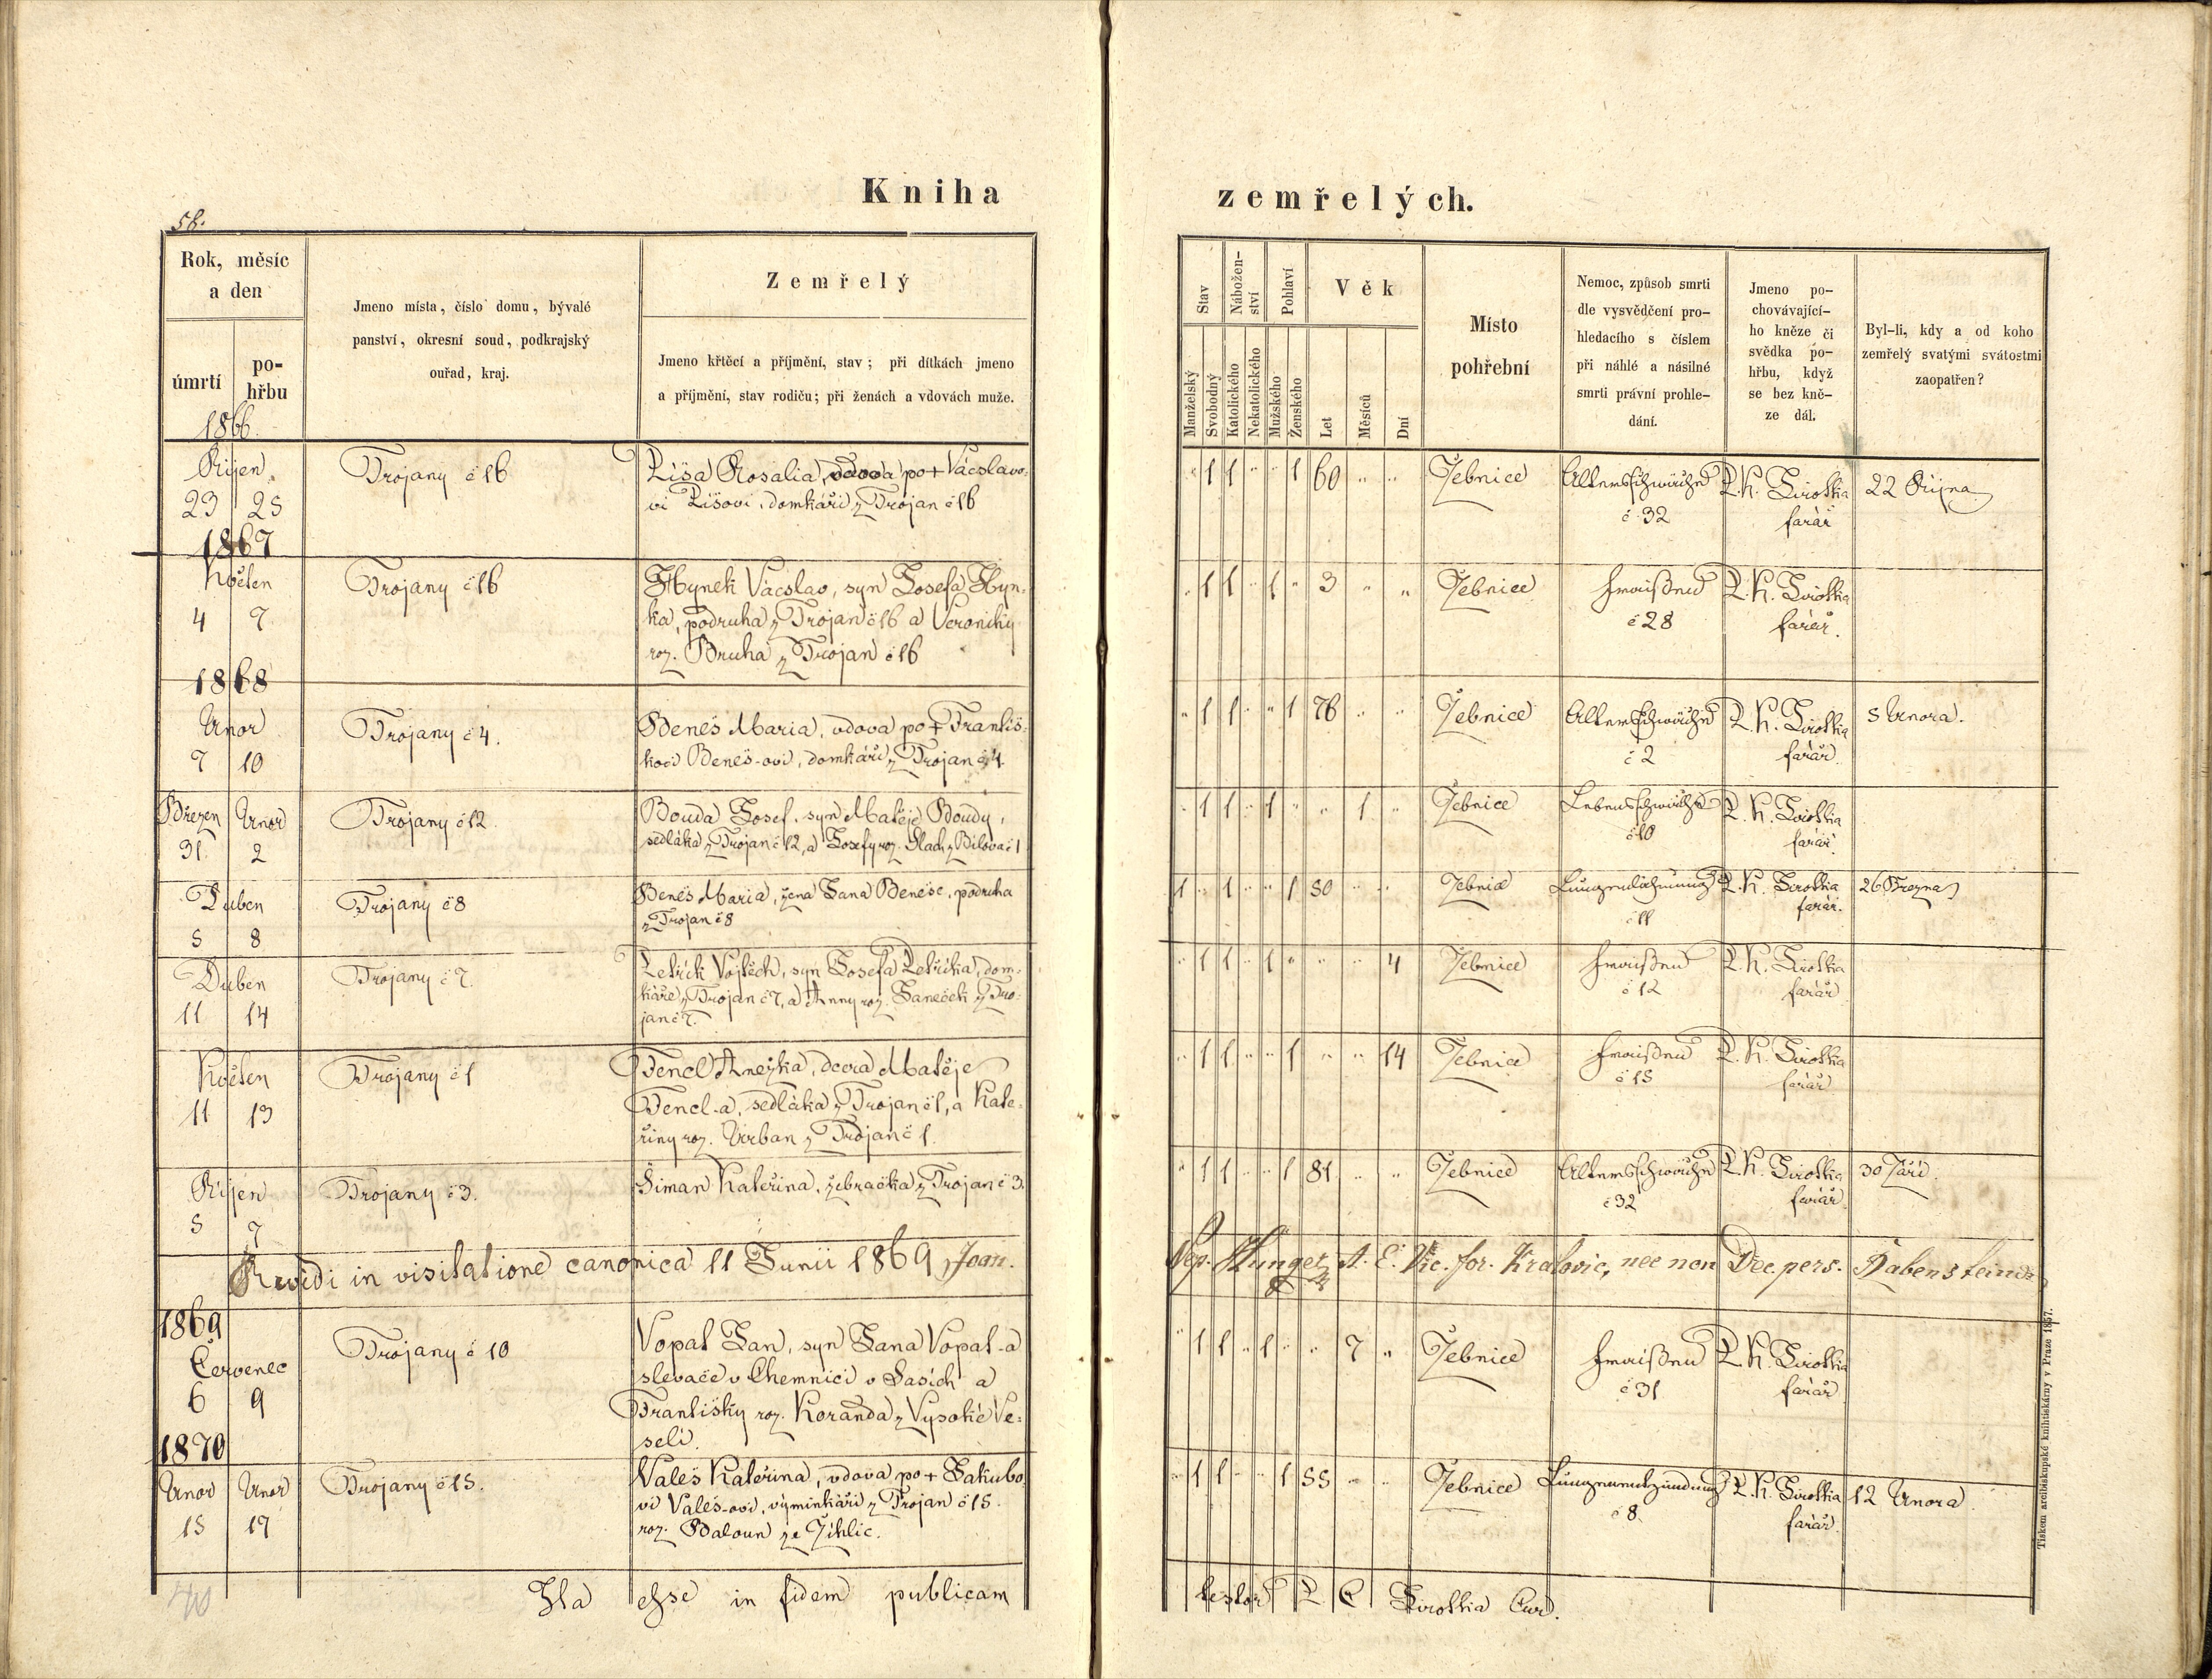 Kniha
zemřelých.
56.
Rok, měsíc
a den
úmrtí
po-
hřbu
Jmeno místa, číslo domu, bývalé
panství, okresní soud, podkrajský
ouřad, kraj.
Zemřelý
Jmeno křtěcí a příjmění, stav; při dítkách jmeno
a příjmění, stav rodičů; při ženách a vdovách muže.
Stav
Nábožen-
ství
Pohlaví
Věk
Manželský
Svobodný
Katolického
Nekatolického
Mužského
Ženského
Let
Měsíců
Dní
Místo
pohřební
Nemoc, způsob smrti
dle vysvědčení pro-
hledacího s číslem
při náhlé a násilné
smrti právní prohle-
dání.
Jmeno po-
chovávající-
ho kněze či
svědka po-
hřbu, když
se bez kně-
ze dál.
Byl-li, kdy a od koho
zemřelý svatými svátostmi
zaopatřen?
1866
Říjen
23 25
Trojany č 16
Rosalia, vdova po + Václavo-
vi domkáři z Trojan č 16
" 1 1 " " 1 60 " "
Žebnice
Altersschwäche
č 32
P. K. Sirotka
farář
22 Října
1867
Květen
4 7
Trojany č 16
Hynek Václav, syn Josefa Hyn-
ka, podruha z Trojan č 16 a Veroniky
roz. Bruha z Trojan č 16
" 1 1 " 1 " 3 " "
Žebnice
Fraißen
č 28
P. K. Sirotka
farář.
1868
Unor
7 10
Trojany č 4.
Beneš Maria, vdova po + Františ-
kovi Beneš-ovi, domkáři z Trojan č 4.
" 1 1 " " 1 76 " "
Žebnice
Altersschwäche
č 2
P. K. Sirotka
farář.
5 Unora.
Březen Unor
31 2
Trojany č 12
Bouda Josef, syn Matěje Boudy,
sedláka z Trojan č 12, a Josefy roz. z Bílova č 1
" 1 1 " 1 " " 1 "
Žebnice
Lebensschwäche
č 10
P. K. Sirotka
farář.
Duben
5 8
Trojany č 8
Beneš Maria, žena Jana Beneše, podruha
z Trojan č 8
1 " 1 " " 1 50 " "
Žebnice
Lungenlähmung
č 11
P. K. Sirotka
farář.
26 Března
Duben
11 14
Trojany č 7.
Petřík Vojtěch, syn Josefa Petříka, dom-
káře z Trojan č 7, a Anny roz. Janeček z Tro-
jan č 7.
" 1 1 " 1 " " " 4
Žebnice
Fraißen
č 12
P. K. Sirotka
farář
Květen
11 13
Trojany č 1
Fencl Anežka, dcera Matěje
Fencl-a, sedláka z Trojan č 1, a Kate-
řiny roz. Urban z Trojan č 1.
" 1 1 " " 1 " " 14
Žebnice
Fraißen
č 15
P. K. Sirotka
farář
Říjen
5 7
Trojany č 3.
Šiman Kateřina, žebračka z Trojan č 3.
" 1 1 " " 1 81 " "
Žebnice
Altersschwäche
č 32
P. K. Sirotka
farář
30 Září.
Revidi in visitatione canonica 11 Junii 1869 Joan.
Nep. Hunger A. E. Vic. for. Kralovic, nec non Dec. pers. Rabenstein
1869
Červenec
6 9
Trojany č 10
Vopat Jan, syn Jana Vopat-a
slevače v Chemnici v Sasích a
Františky roz. Koranda z Vysoké Ve-
selí.
" 1 1 " 1 " " 7 "
Žebnice
Fraißen
č 31
P. K. Sirotka
farář
1870
Unor Unor
15 17
Trojany č 15.
Valeš Kateřina, vdova po + Jakubo-
vi Valeš-ovi, výminkáři z Trojan č 15.
roz. Baloun ze Žihlic.
" 1 1 " " 1 55 " "
Žebnice
Lungenentzündung
č 8.
P. K. Sirotka
farář.
12 Unora
Ita esse in fidem publicam
testor P C Sirotka Cur.
Tiskem arcibiskupské knihtiskárny v Praze 1857.